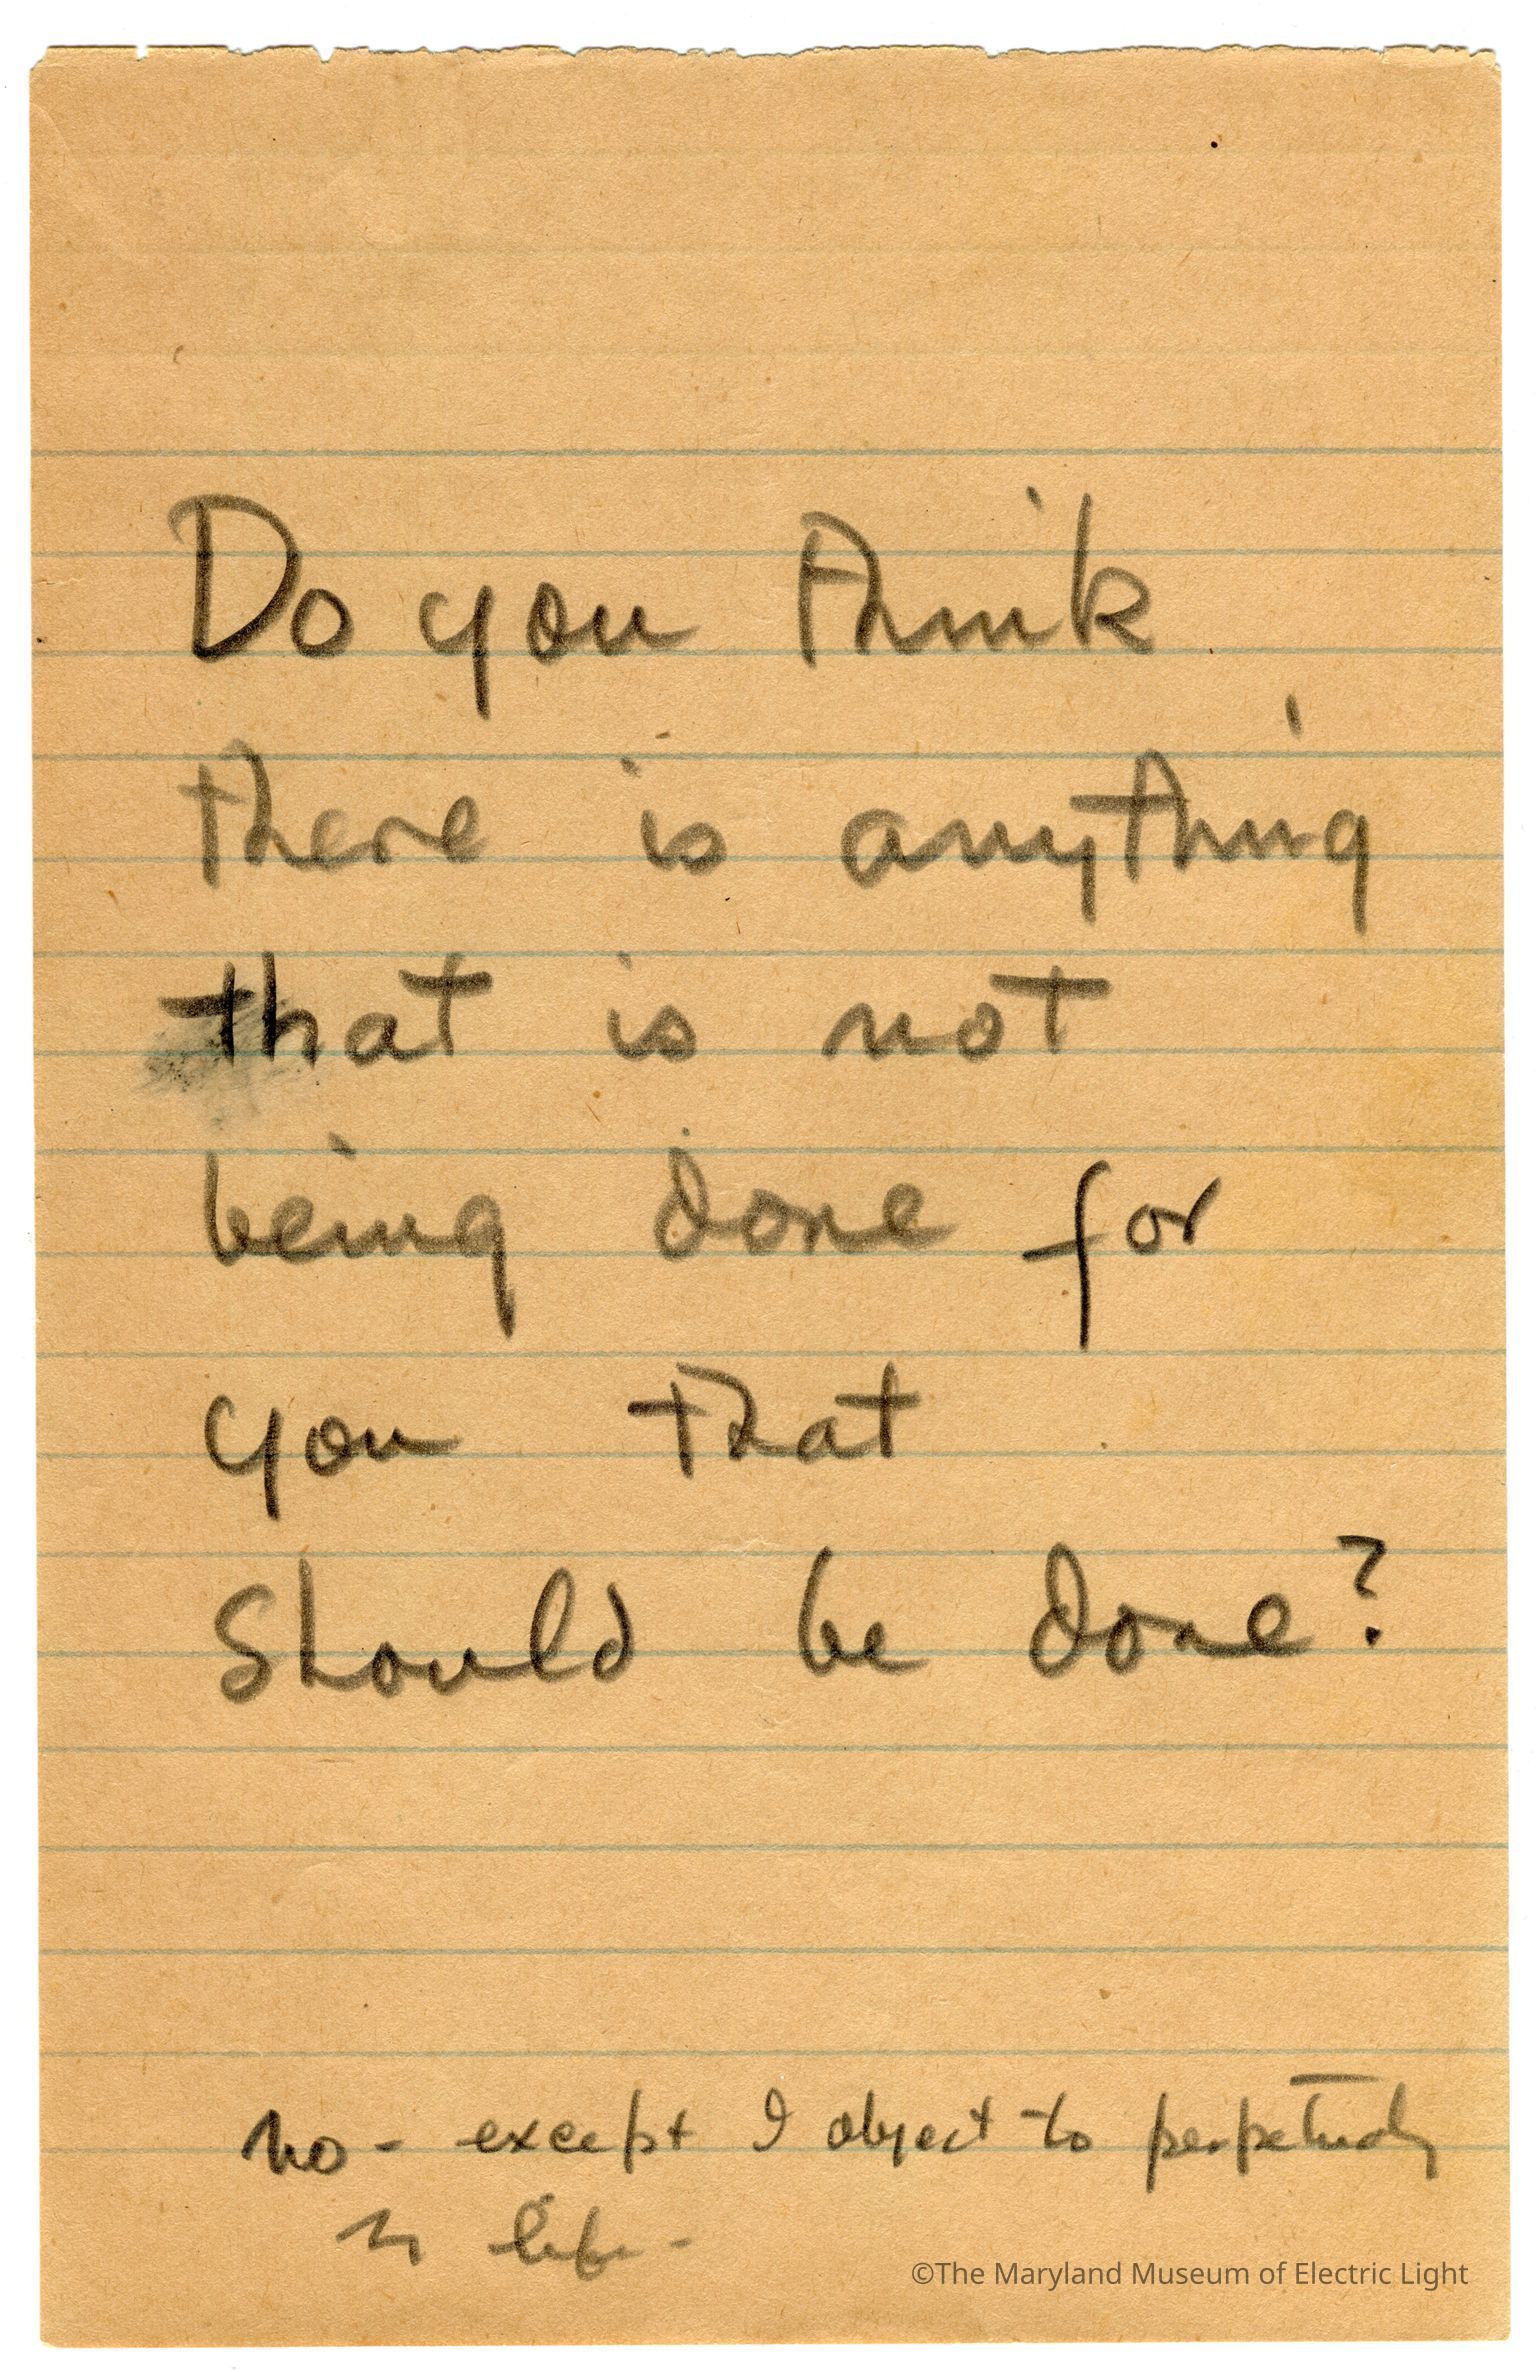 Do you think
there is anything
that is not
being done for
you that
should be done?
no - except I object to
life -
©The Maryland Museum of Electric Light